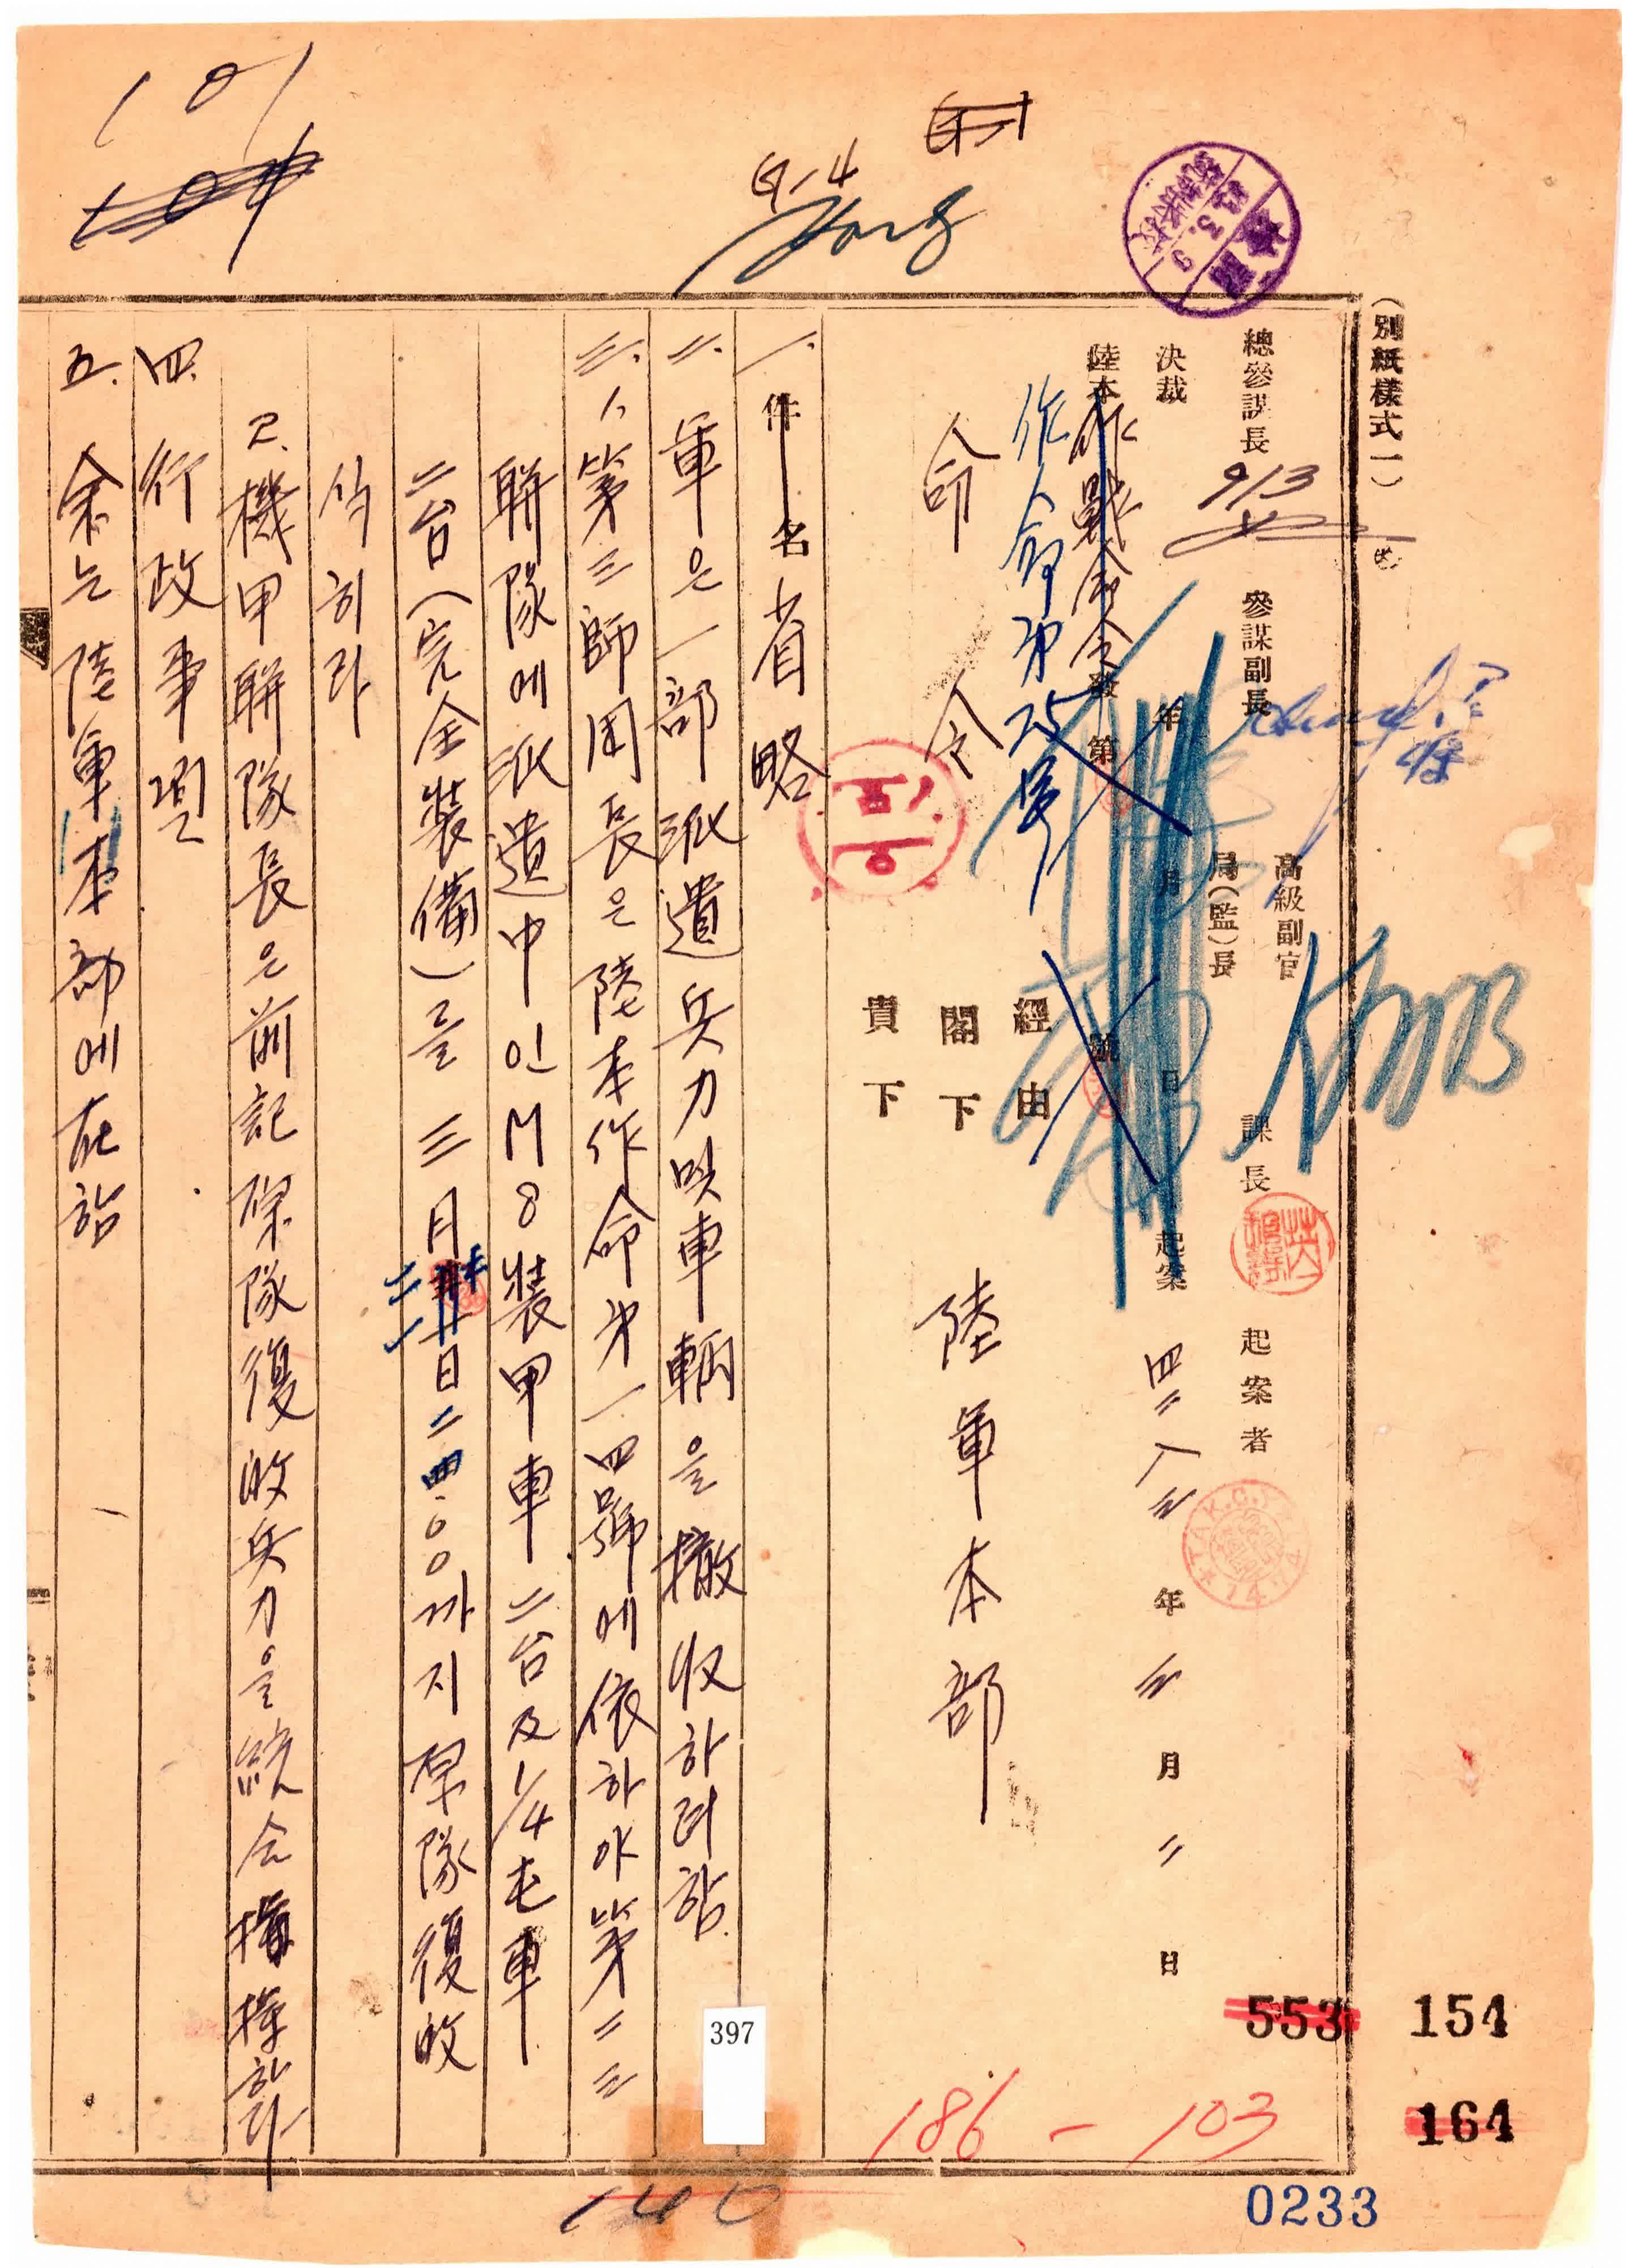 (別紙樣式一)
總參謀長 參謀副長 高級副官 局(監)長 課長 起案者
9/3
決裁 年 月 日 起案 四二八三年三月二日
陸本作戰命令發第 號
作命第25號
經由
閣下
貴下
命令
陸軍本部
一. 件名 省略
二. 軍은 一部 派遣兵力 및 車輌을 撤收하려 함
三. 1. 第三師団長은 陸本作命第一四號에 依하야 第二三
聯隊에 派遣中인 M8 裝甲車 二台 及 1/4屯車
二台(完全裝備)를 三月 二一日 二四.00까지 原隊復皈
식히라
2. 機甲聯隊長은 前記 原隊復皈 兵力을 統合 指揮하라
四. 行政事項
五. 余는 陸軍本部에 在함
101
G-4
397
553
154
164
186-103
140
0233